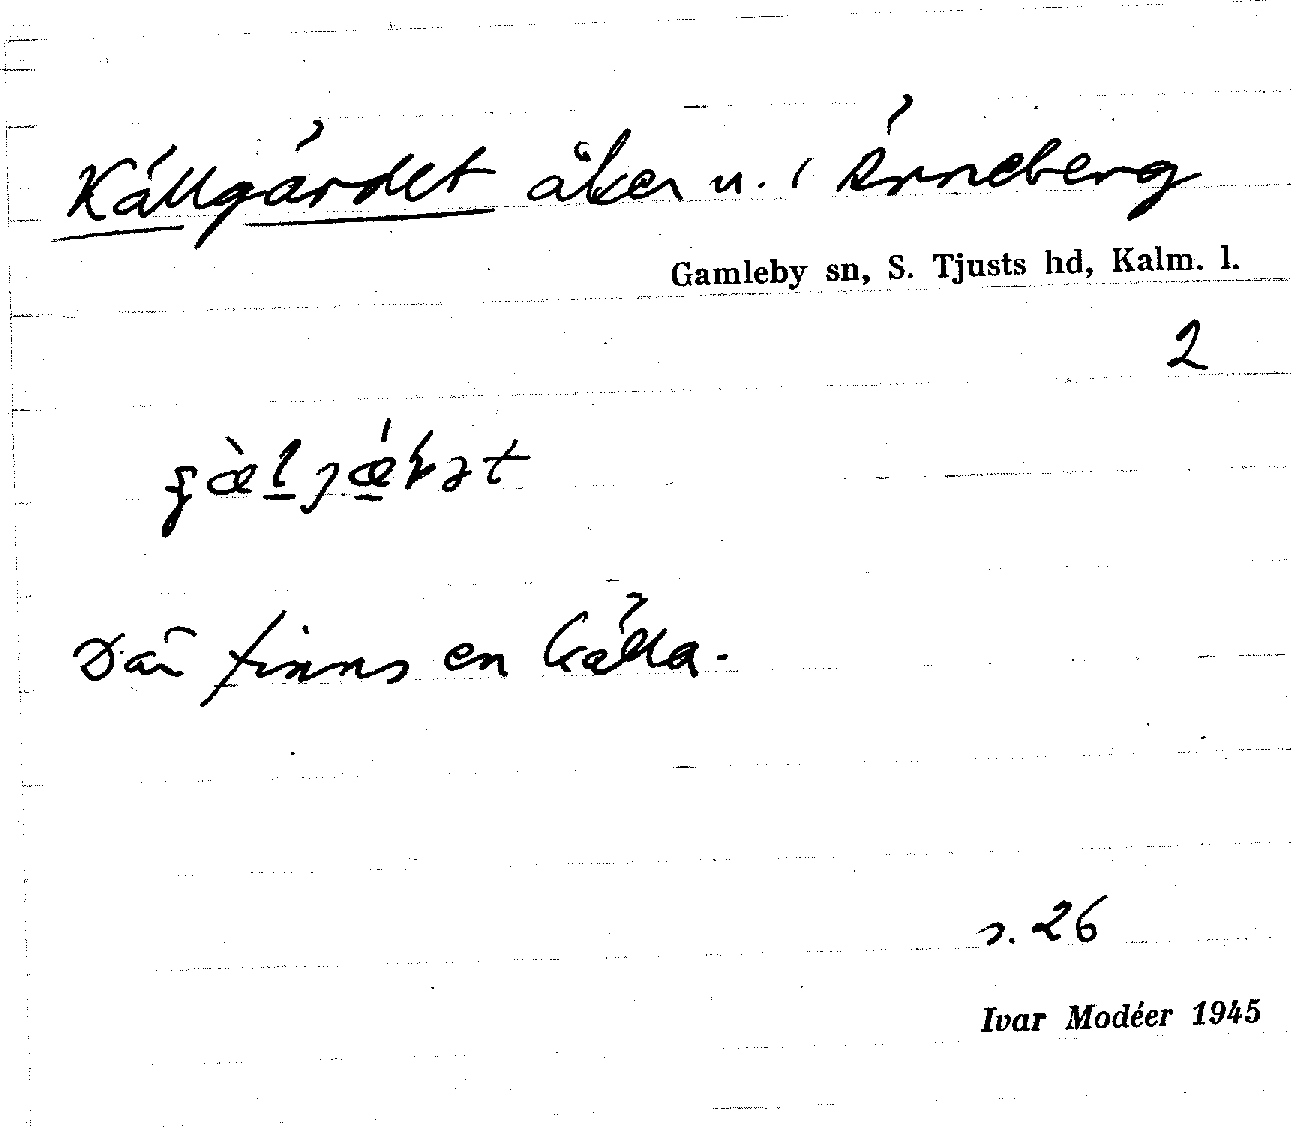 Källgärdet åker u. i Änneberg
Gamleby sn, S. Tjusts hd, Kalm. l.
2
Där finns en källa.
s. 26
Ivar Modéer 1945